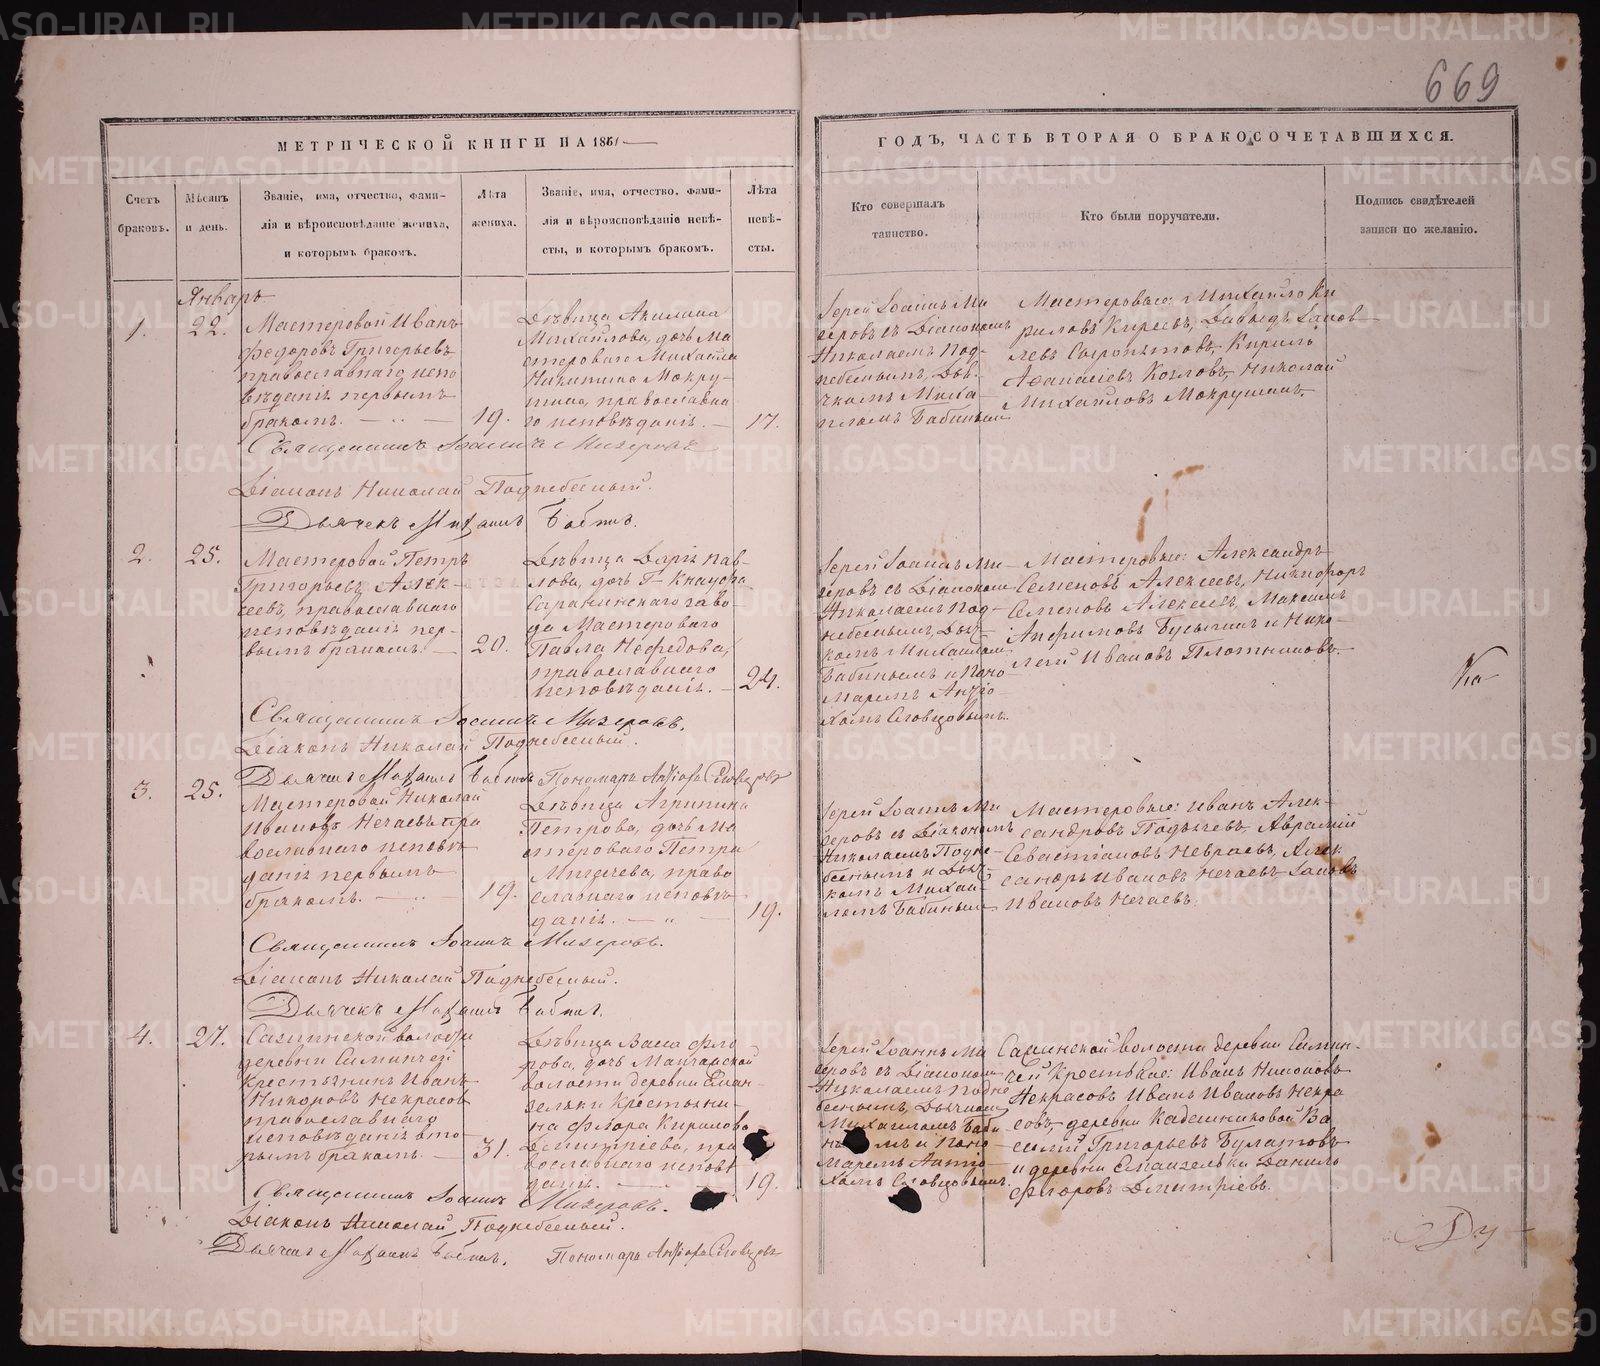 669
МЕТРИЧЕСКОЙ КНИГИ НА 1861
ГОДЪ, ЧАСТЬ ВТОРАЯ О БРАКОСОЧЕТАВШИХСЯ.
Счетъ браковъ.
Мѣсяцъ и день.
Званіе, имя, отчество, фами-
лія и вѣроисповѣданіе жениха,
и которымъ бракомъ.
Лѣта
жениха.
Званіе, имя, отчество, фами-
лія и вѣроисповѣданіе невѣ-
сты, и которымъ бракомъ.
Лѣта
невѣ-
сты.
Кто совершалъ
таинство.
Кто были поручители.
Подпись свидѣтелей
записи по желанію.
Январь
1.
22.
Мастеровой Иванъ
Федоровъ Григорьевъ
православнаго испо
вѣданія первымъ
бракомъ.
19.
Дѣвица Акилина
Михайлова, дочь Ма
стероваго Михаила
Никитина Мокру-
шина, православна
го исповѣданія.
17.
Іерей Іоаннъ Ми
зеровъ съ Діакономъ
Николаемъ Под-
небеснымъ, Дья-
чкомъ Миха-
иломъ Бабинымъ
Мастеровые: Михайло Ки
риловъ Киреевъ, Давыдъ Іаков
левъ Сыропятовъ, Кирилъ
Афанасіевъ Козловъ, Николай
Михайловъ Мокрушинъ.
Священникъ Іоаннъ Мизеровъ
Діаконъ Николай Поднебесный.
Дьячекъ Михаилъ Бабинъ.
2.
25.
Мастеровой Петръ
Григорьевъ Алек-
сеевъ, православнаго
исповѣданія пер-
вымъ бракомъ.
20.
Дѣвица Дарія Пав-
лова, дочь Г. Кнауфа
Саранинскаго заво-
да Мастероваго
Павла Нефедова,
православнаго
исповѣданія.
24.
Іерей Іоаннъ Ми-
зеровъ съ Діакономъ
Николаемъ Под-
небеснымъ, Дьяч-
комъ Михаиломъ
Бабинымъ и Поно-
маремъ Антіо-
хомъ Словцовымъ.
Мастеровые: Александръ
Семеновъ Алексеевъ, Никифоръ
Семеновъ Алексеевъ, Максимъ
Анфимовъ Бусыгинъ и Нико-
лай Ивановъ Плотниковъ.
Ка
Священникъ Іоаннъ Мизеровъ.
Діаконъ Николай Поднебесный.
Дьячекъ Михаилъ Бабинъ Пономарь Антіохъ Словцовъ
3.
25.
Мастеровой Николай
Ивановъ Нечаевъ пра
вославнаго исповѣ
данія первымъ
бракомъ.
19.
Дѣвица Агрипина
Петрова, дочь Ма
стероваго Петра
Мигачева, право
славнаго исповѣ
данія.
19.
Іерей Іоаннъ Ми
зеровъ съ Діакономъ
Николаемъ Подне-
беснымъ и Дьяч
комъ Михаи-
ломъ Бабинымъ
Мастеровые: Иванъ Алек-
сандровъ Подъячевъ, Аврамій
Севастіановъ Невраевъ, Алек
сандръ Ивановъ Нечаевъ Іаковъ
Ивановъ Нечаевъ.
Священникъ Іоаннъ Мизеровъ.
Діаконъ Николай Поднебесный.
Дьячекъ Михаилъ Бабинъ.
4.
27.
деревни
Крестьянинъ Иванъ
Никоновъ Некрасовъ
православнаго
исповѣданія вто
рымъ бракомъ.
31.
Дѣвица Васса Фло
рова, дочь Манчажской
волости деревни
Крестьяни-
на Флора Кирилова
Дмитріева, пра
вославнаго исповѣ
данія.
19.
Іерей Іоаннъ Ми
зеровъ съ Діакономъ
Николаемъ Подне
беснымъ, Дьячкомъ
Михаиломъ Баби
нымъ и Поно-
маремъ Антіо-
хомъ Словцовымъ.
волости деревни
Крестьяне: Иванъ Никоновъ
Некрасовъ Иванъ Ивановъ Некра
совъ, деревни Кадешниковой Ва
силій Григорьевъ Булатовъ
и деревни Данилъ
Флоровъ Дмитріевъ.
Священникъ Іоаннъ Мизеровъ.
Діаконъ Николай Поднебесный.
Дьячекъ Михаилъ Бабинъ. Пономарь Антіохъ Словцовъ
METRIKI.GASO-URAL.RU